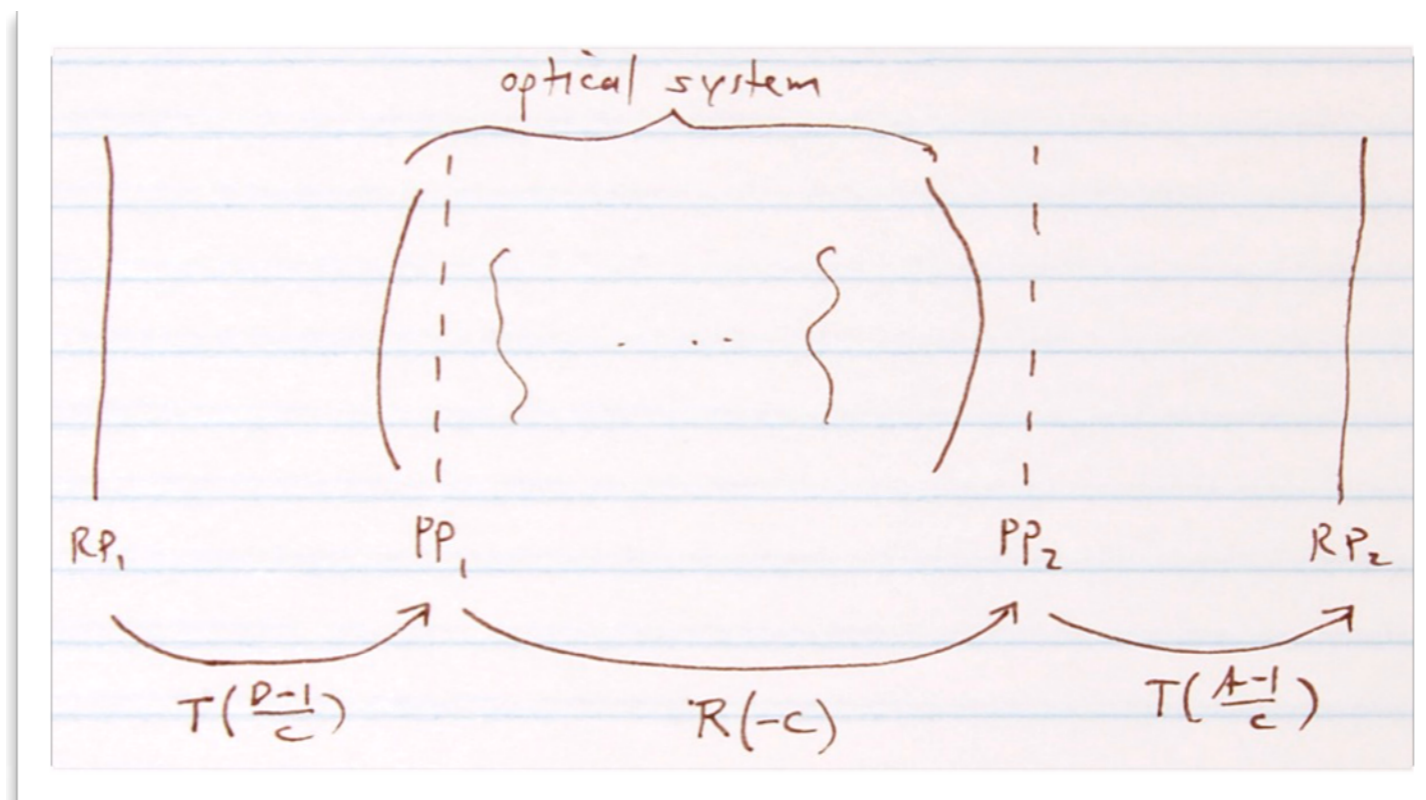 optical system
RP₁ PP₁ PP₂ RP₂
T(D-1/C) R(-C) T(A-1/C)